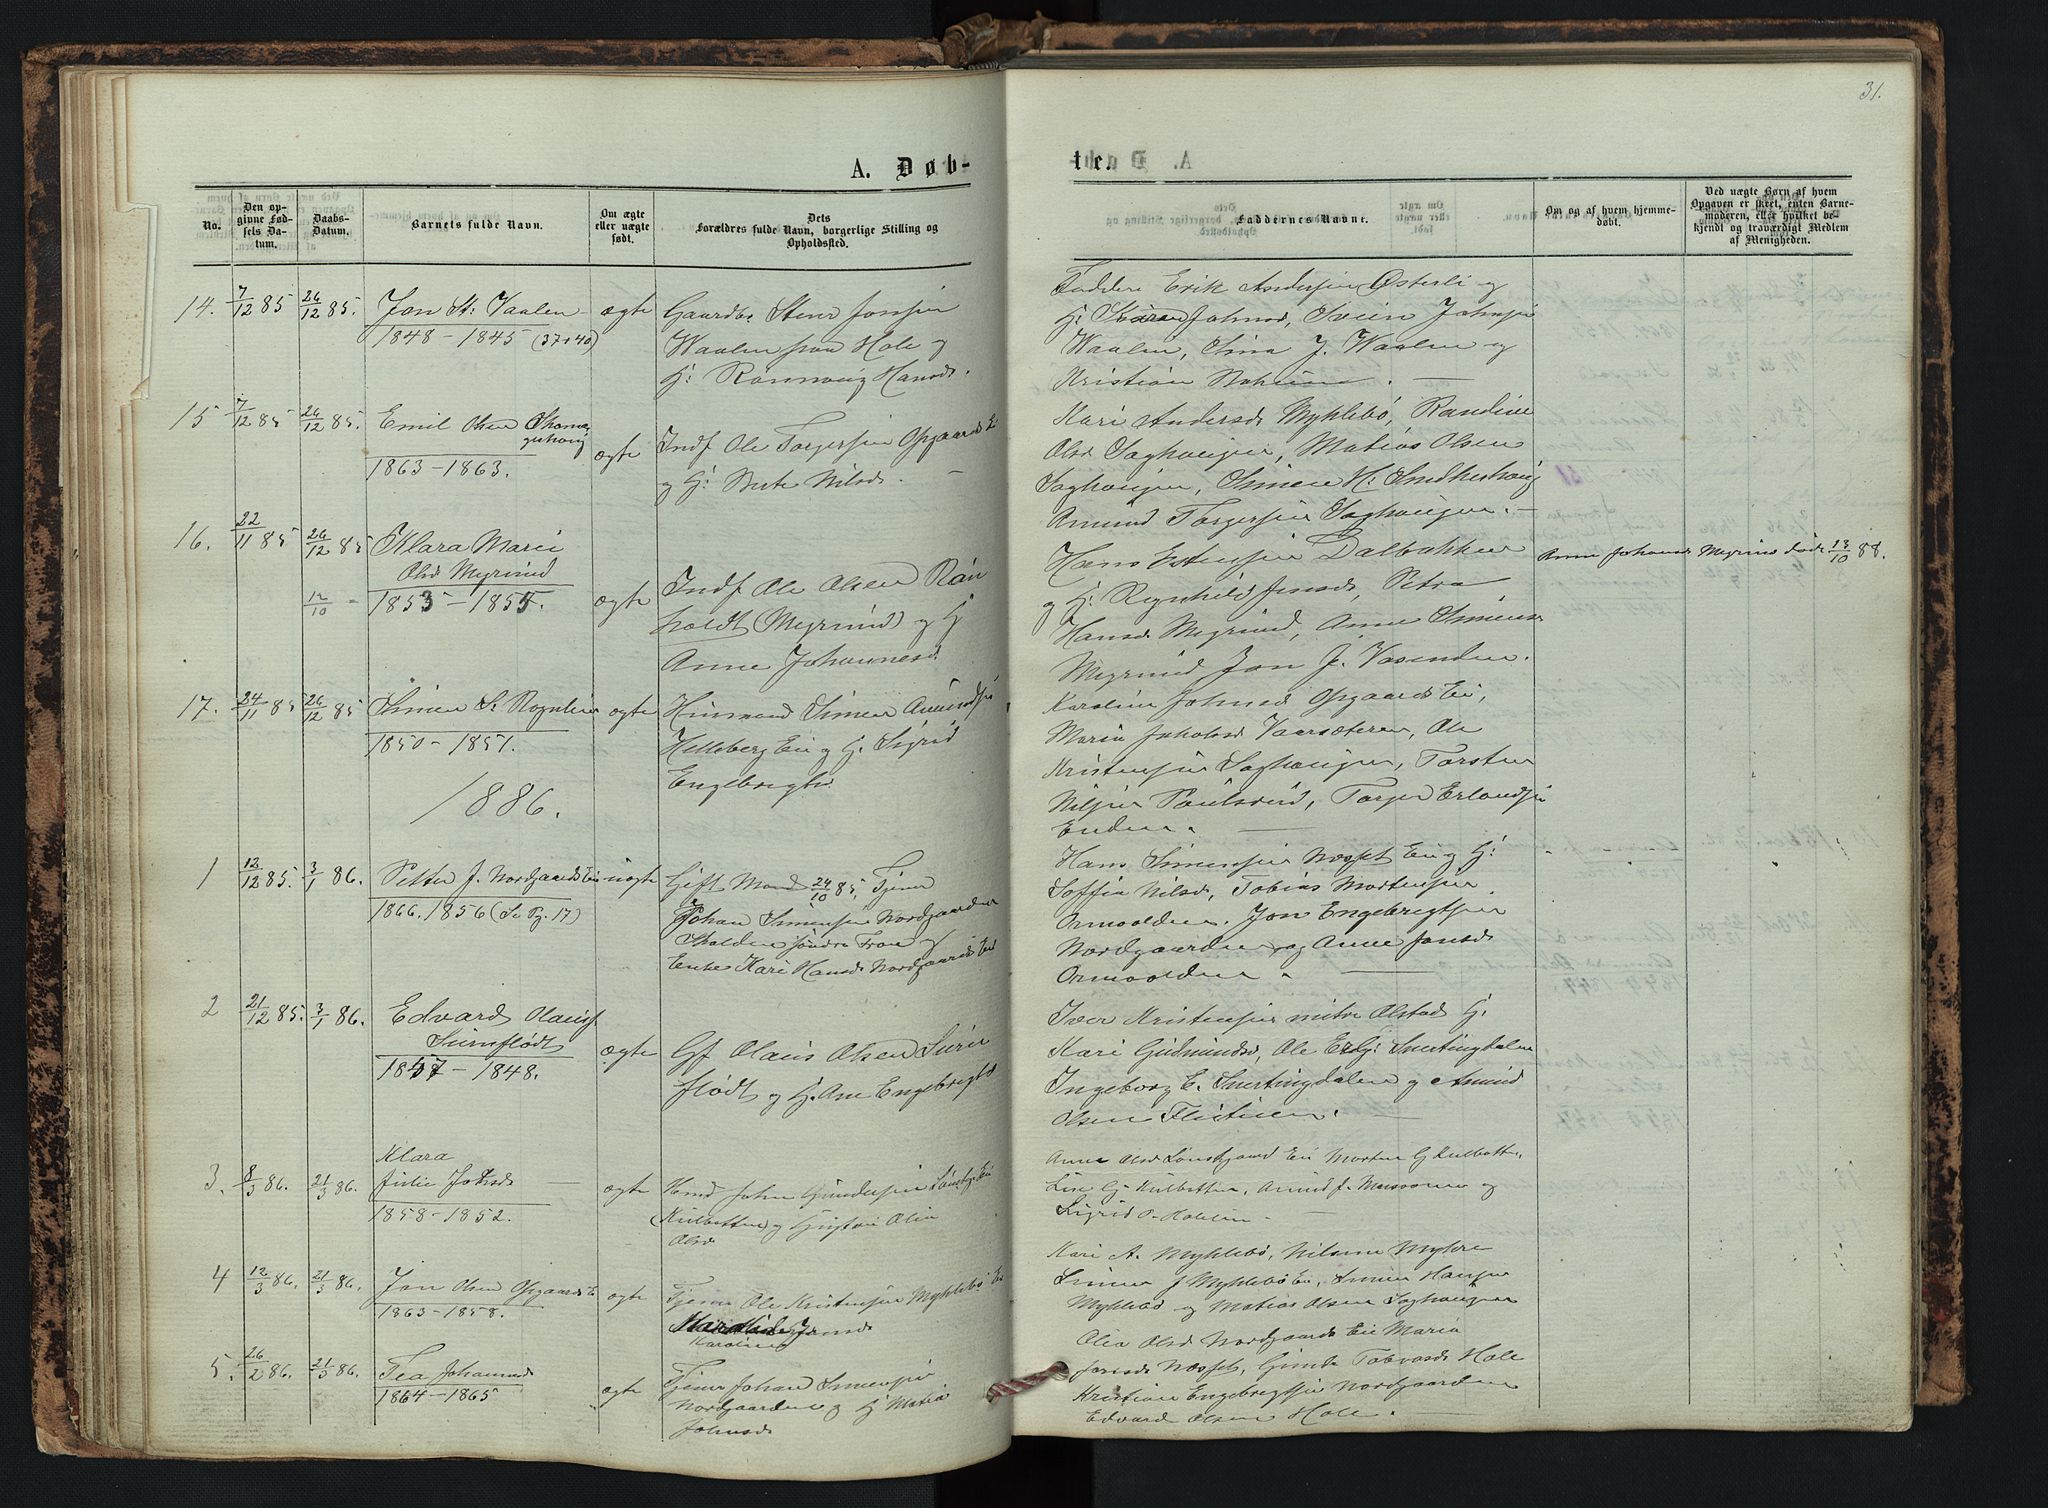 31.
A. Døb-
te.
No.
Den op-
givne Fød-
sels Da-
tum.
Daabs-
Datum.
Barnets fulde Navn.
Om ægte
eller uægte
født.
Dets
Forældres fulde Navn, borgerlige Stilling og
Opholdssted.
Faddernes Navne.
Om og af hvem hjemme-
døbt.
Ved uægte Børn af hvem
Opgaven er skeet, enten Barne-
moderen, eller hvilket be-
kjendt og troværdigt Medlem
af Menigheden.
14. 7/12 85 26/12 85. Jon St. Vaalen ægte
1848 - 1845 (37+40)
Gaardbr. Sten Jonsen
Waalen fra Hole og
H: Rønnoug Hansd.
Faddere Erik Andersen Østerli og
H: Johnsd, Svein Johnsen
Waalen, Sina J. Waalen og
Kristian
15 7/12 85 26/12 85. Emil Olsen
1863 - 1863.
ægte
Indf Ole Torgersen Opgaards Ei
og H: Berte Nilsd.
Kari Andersd Myklebø, Randine
Olsd Saghaugen, Matias Olsen
Saghaugen, Simen H.
Amund Torgersen Saghaugen.
16. 22/11 85 26/12 85 Klara Marie
Olsd Myrmud
12/10 - 1853 - 1855. ægte
Indf Ole Olsen Røn
holdt (Myrmud) og H
Anne Johannesd
Hans Dalbakken
og H: Ragnhild Jensd, Petra
Hansd Myrmud, Anne Simensd
Myrmud, Jon J. Vasenden.
Anne Johansd Myrmud født 13/10 88.
17. 24/11 85 26/12 85 Simen S. Rognlien ægte
1850 - 1851.
Husmand Simen Amundsen
Helleberg Ei og H. Sigrid
Engebregtsd
Karoline Johnsd Opgaards Ei,
Maria Jakobsd Vaarsæteren, Ole
Kristensen Saghaugen, Torsten
Nilsen Paulsrud, Torger Erlandsen
Enden.
1886.
1 12/12 85. 3/1 86. Petter J. Nordgaards Ei uægte
1866. 1856 (Se Pg. 17)
Gift Mand 24/10 85, Tjener
Johan Simensen Nordgaarden
Skolden søndre Fron og
Enke Kari Hansd Nordgaards Ei
Hans Simensen Næsset Ei og H:
Soffia Nilsd, Tobias Mortensen
Ormvolden. Jon Engebregtsen
Nordgaarden og Anne Jonsd
Ormvolden.
2 21/12 85. 3/1 86. Edvard Olauss.
Surnflødt
1847 - 1848. ægte
Gf Olaus Olsen Surn
flødt og H. Ane Engebregtsd
Iver Kristensen nitre Olstad H.
Kari Gudmundsd, Ole Snertingdalen
Ingeborg E. Snertingdalen og Amund
Olsen
3. 8/3 86. 21/3 86. Klara
Julie Johnsd
1858 - 1852. ægte
Hmd John Gundersen
(Kulbotten) og Hustru Olia
Olsd
Anne Olsd Ei Morten G Kulbotten,
Lise G. Kulbotten, Amund J. og
Sigrid O. Holen.
4 12/3 86. 21/3 86. Jon Olsen Opgaards E
1863 - 1858. ægte
Tjener Ole Kristensen Myklebø Ei
Jonsd
Karoline
Kari A. Myklebø, Nilsine Myhre
Simen J Myklebø Ei, Simen Hansen
Myklebø og Matias Olsen Saghaugen
5. 26/2 86. 21/3 86. Tea Johannesd
1864 - 1865 ægte
Tjener Johan Simensen
Nordgaarden og H Matia
Johnsd
Olia Olsd Nordgaards Ei Maria
Jonsd Næsset, Tobiasd Hole
Kristian Engebregtsen Nordgaarden
Edvard Olsen Hole.